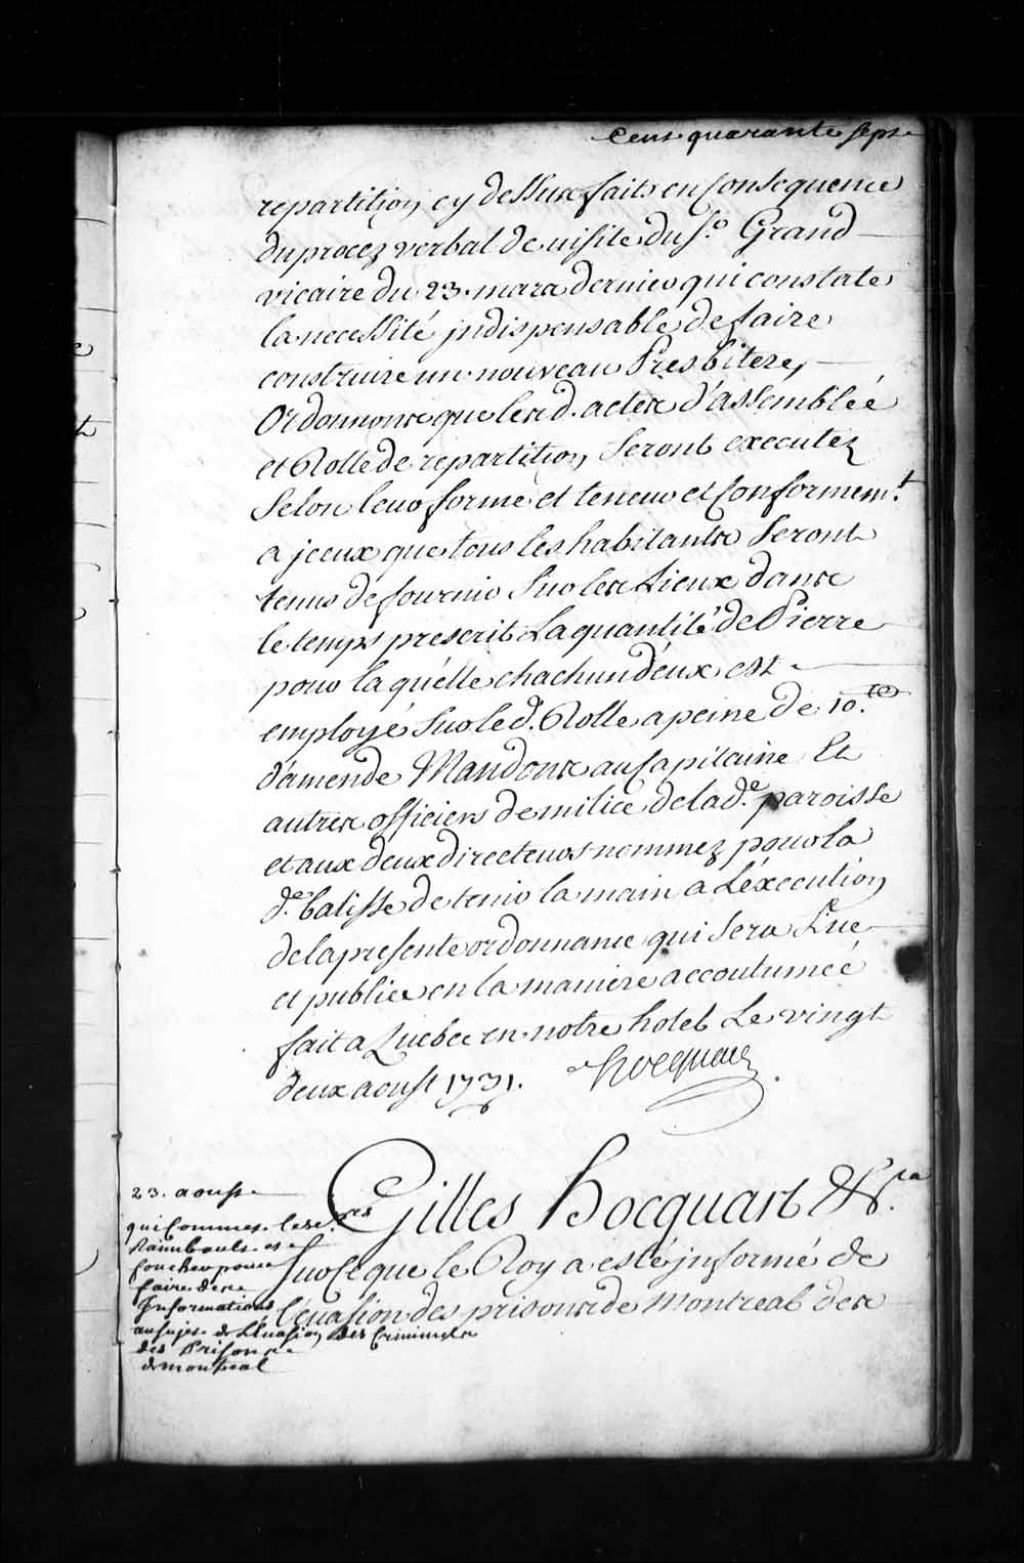 Cent quarante sept
repartition cy dessus faits en Consequence
du procez verbal de visite du S.r Grand
vicaire du 23. mars dernier qui constate
la necessité jndispensable de faire
construire un nouveau Presbitere,
Ordonnons que les d. actes d'assembléé
et Rolle de repartition Seront executez
Selon leur forme et teneur et Conformem.t
a jceux que tous les habitants Seront
tenus de fournir Sur les Lieux dans
le temps prescrit La quantité de Pierre
pour laquélle chachun d'eux est
employé Sur le d. Rolle a peine de 10.
d'amende Mandons au Capitaine Et
autres officiers de milice de la d.e paroisse
et aux deux directeurs nommez pour la
d.e batisse de tenir la main a L'éxecution
de la presente ordonnance qui sera Lue
et publiée en la maniere accoutuméé
fait a Quebec en notre hotel Le vingt
deux aoust 1731. Hocquart
Gilles hocquart &c.a
23. aoust
qui Commet les S.rs
Raimbault et
foucher pour
faire des
Informations
au sujet de L'evasion des Criminels
des Prisons
de montreal
Sur Ce que le Roy a esté jnformé de
l'évasion des prisons de Montreal des